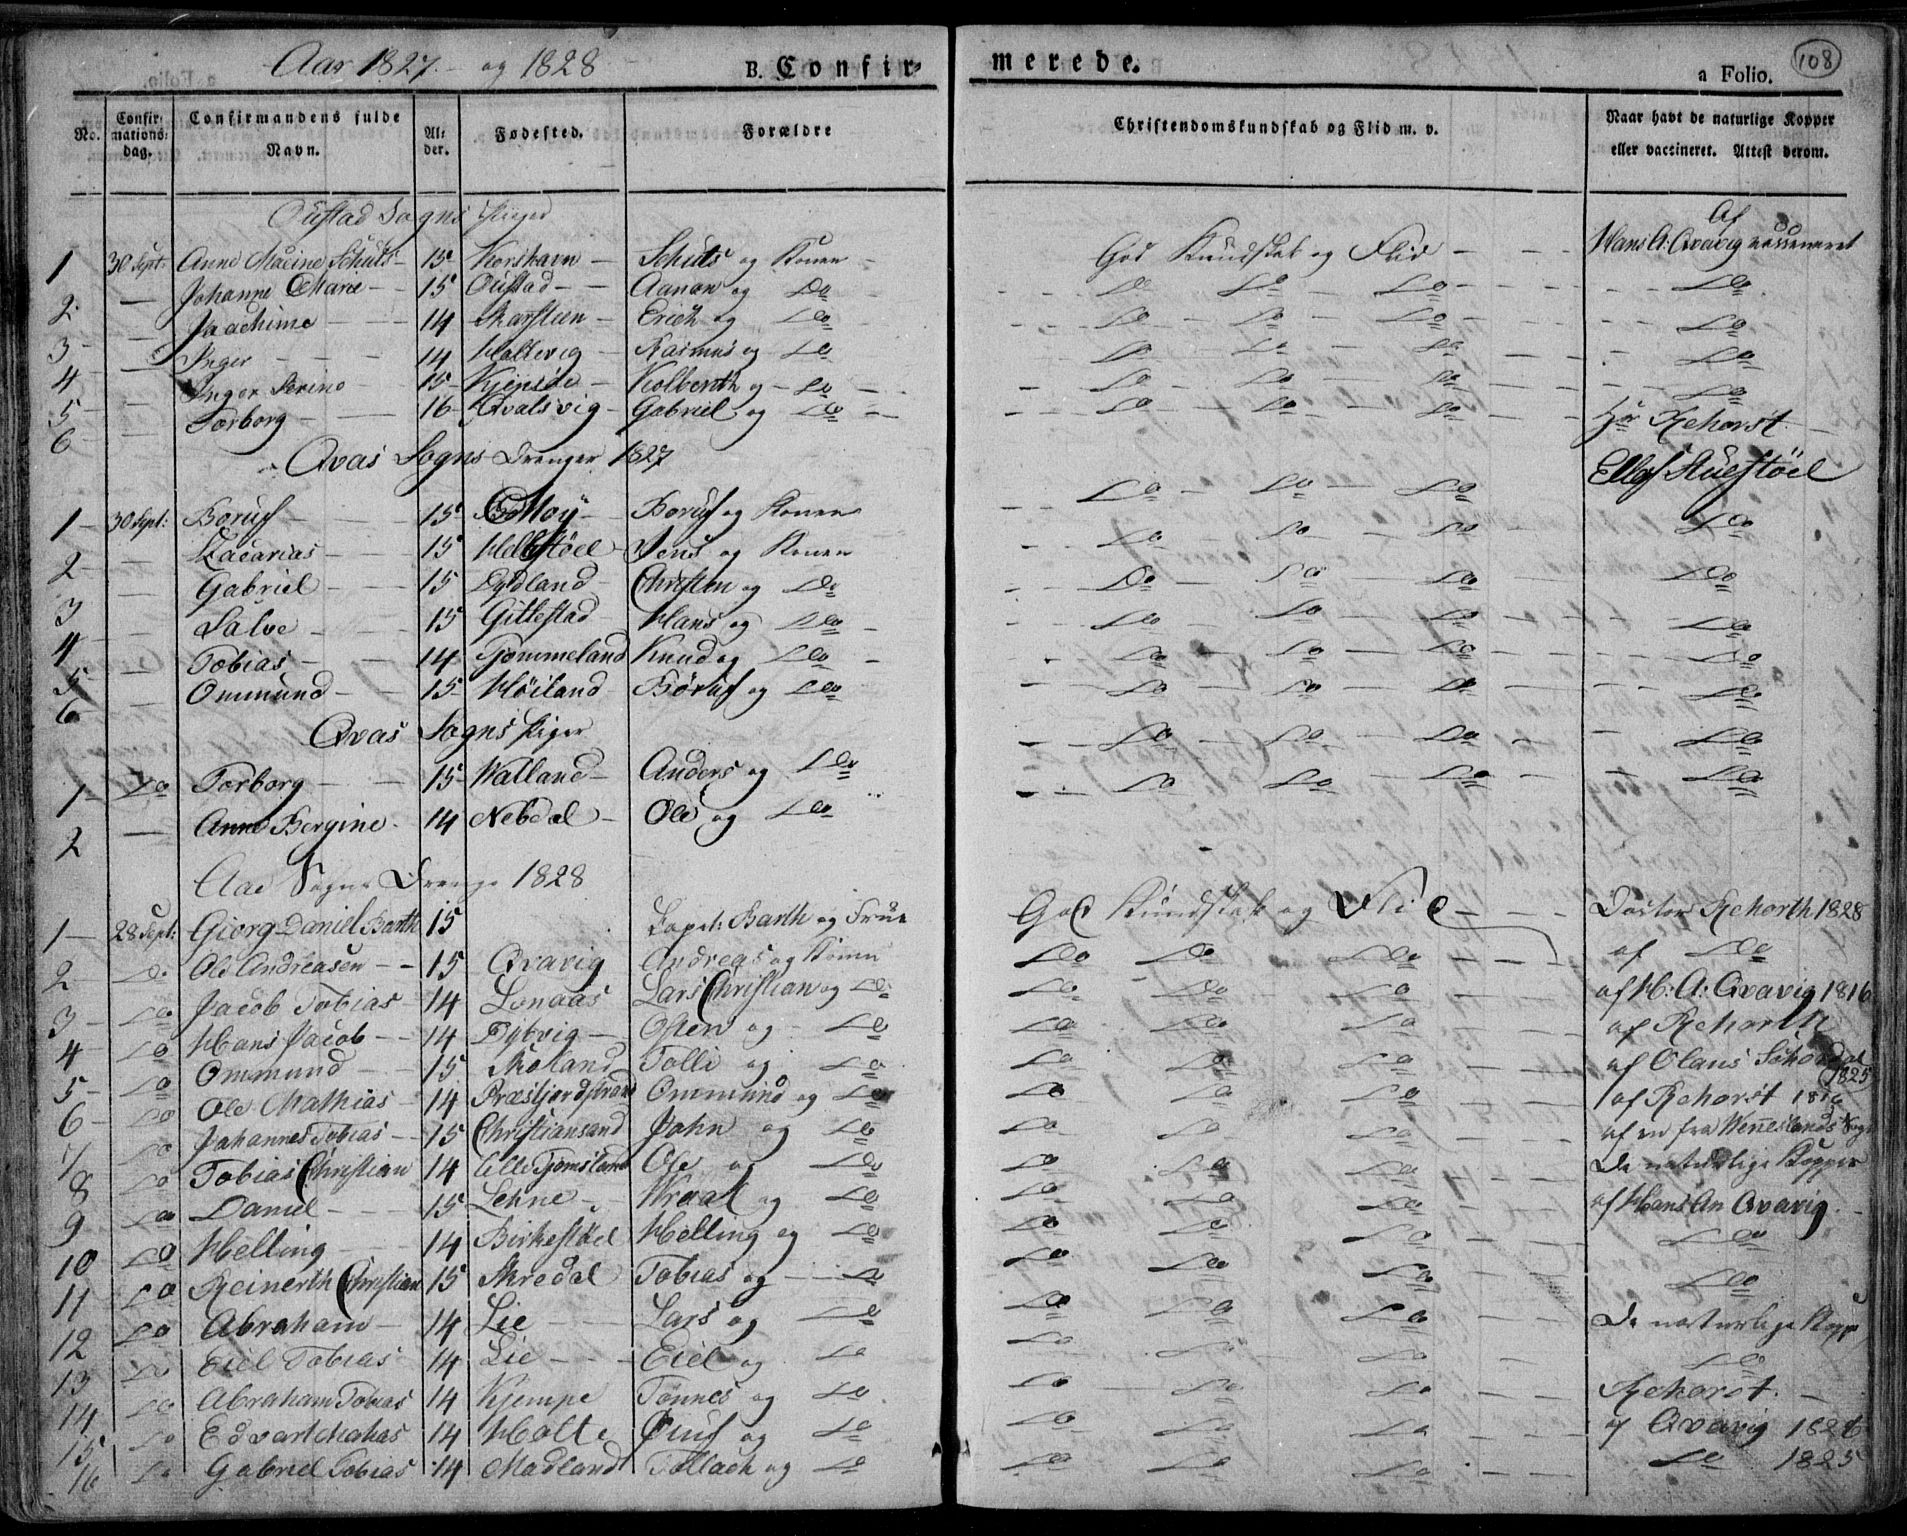 Aar 1827. og 1828 B. Confir= merede. a Folio. 108
No. Confir= mations= dag. Confirmandens fulde Navn. Al= der. Fødested. Forældre Christendomskundskab og Flid m. v. Naar havt de naturlige Kopper eller vaccineret. Attest derom.
Øustad Sogns Piger
1 30 Sept: Anne Marine Schuts 15 Korshavn Schuts og Konen God Kundskab og Flid Af Hans A: Qvavig vasseneret
2 Johanne Marie 15 Oustad Aanon og Do Do Do Do Do
3 Joachime 14 Skarstien Erich og Do Do Do Do Do
4 Inger 14 Hollevig Rasmus og Do Do Do Do Do
5 Inger Serine 15 Kolbenth og Do Do Do Do Do
6 Torborg 16 Qvalsvig Gabriel og Do Do Do Do Hr Rehorst
Qvas Sogns Drenger 1827
Do Do Do Ellef Ruestøel
1 30 Sept: Boruf 15 Moy Boruf og Konen Do Do Do Do
2 Zacarias 15 Helbstøel Jens og Konen Do Do Do Do
3 Gabriel 15 Eydland Christen og Do
4 Salve 15 Gittestad Hans og Do Do Do Do Do
5 Tobias 14 Gommeland Knud og Do Do Do Do Do
6 Ommund 15 Høiland Børuf og Do Do Do Do Do
Qvas Sogns Piger
1 Do Torborg 15 Walland Anders og Do Do Do Do Do
2 Anne Bergine 14 Nebdal Ole og Do Do Do Do Do
Aae Sogns Drenge 1828
1 28 Sept: Giorg Daniel Barth 15 Capt: Barth og Frue God Kundskab og Flid Doctor Rehorth 1828
2 Do Ole Andreasen 15 Qvavig Andreas og Konen Do Do Do af Do
3 Do Jacob Tobias 14 Lonaas Lars Christian og Do Do Do Do af H: A: Qvavig 1816
4 Do Hans Jacob 14 Dybvig Osten og Do Do Do Do af Rehorth
5 Do Ommund 15 Moland Tolli og Do Do Do Do af Olaus 1825
6 Do Ole Mathias 14 Præstjordstrand Ommund og Do Do Do Do af Rehorst 1816
7 Do Johannes Tobias 15 Christiansand John og Do Do Do Do af en fra Wenneslands Sogn
8 Do Tobias Christian 14 Lille Tjomsland Ole og Do Do Do Do De naturlige Kopper
9 Do Daniel 15 Lehne Wraal og Do Do Do Do af Hans An Qvavig
10 Do Helling 14 Birkestøel Helling og Do Do Do Do Do
11 Do Reinerth Christian 15 Skredal Tobias og Do Do Do Do Do
12 Do Abraham 14 Lie Lars og Do Do Do Do De naturlige Kopp
13 Do Eiel Tobias 14 Lie Eiel og Do Do Do Do Do
14 Do Abraham Tobias 14 Kjempe Tønnes og Do Do Do Do Rehorst
15 Do Edvart 14 Holte og Do Do Do Do af Qvavig
16 Do Gabriel Tobias 14 Madland Tollach og Do Do Do Do Do 1825